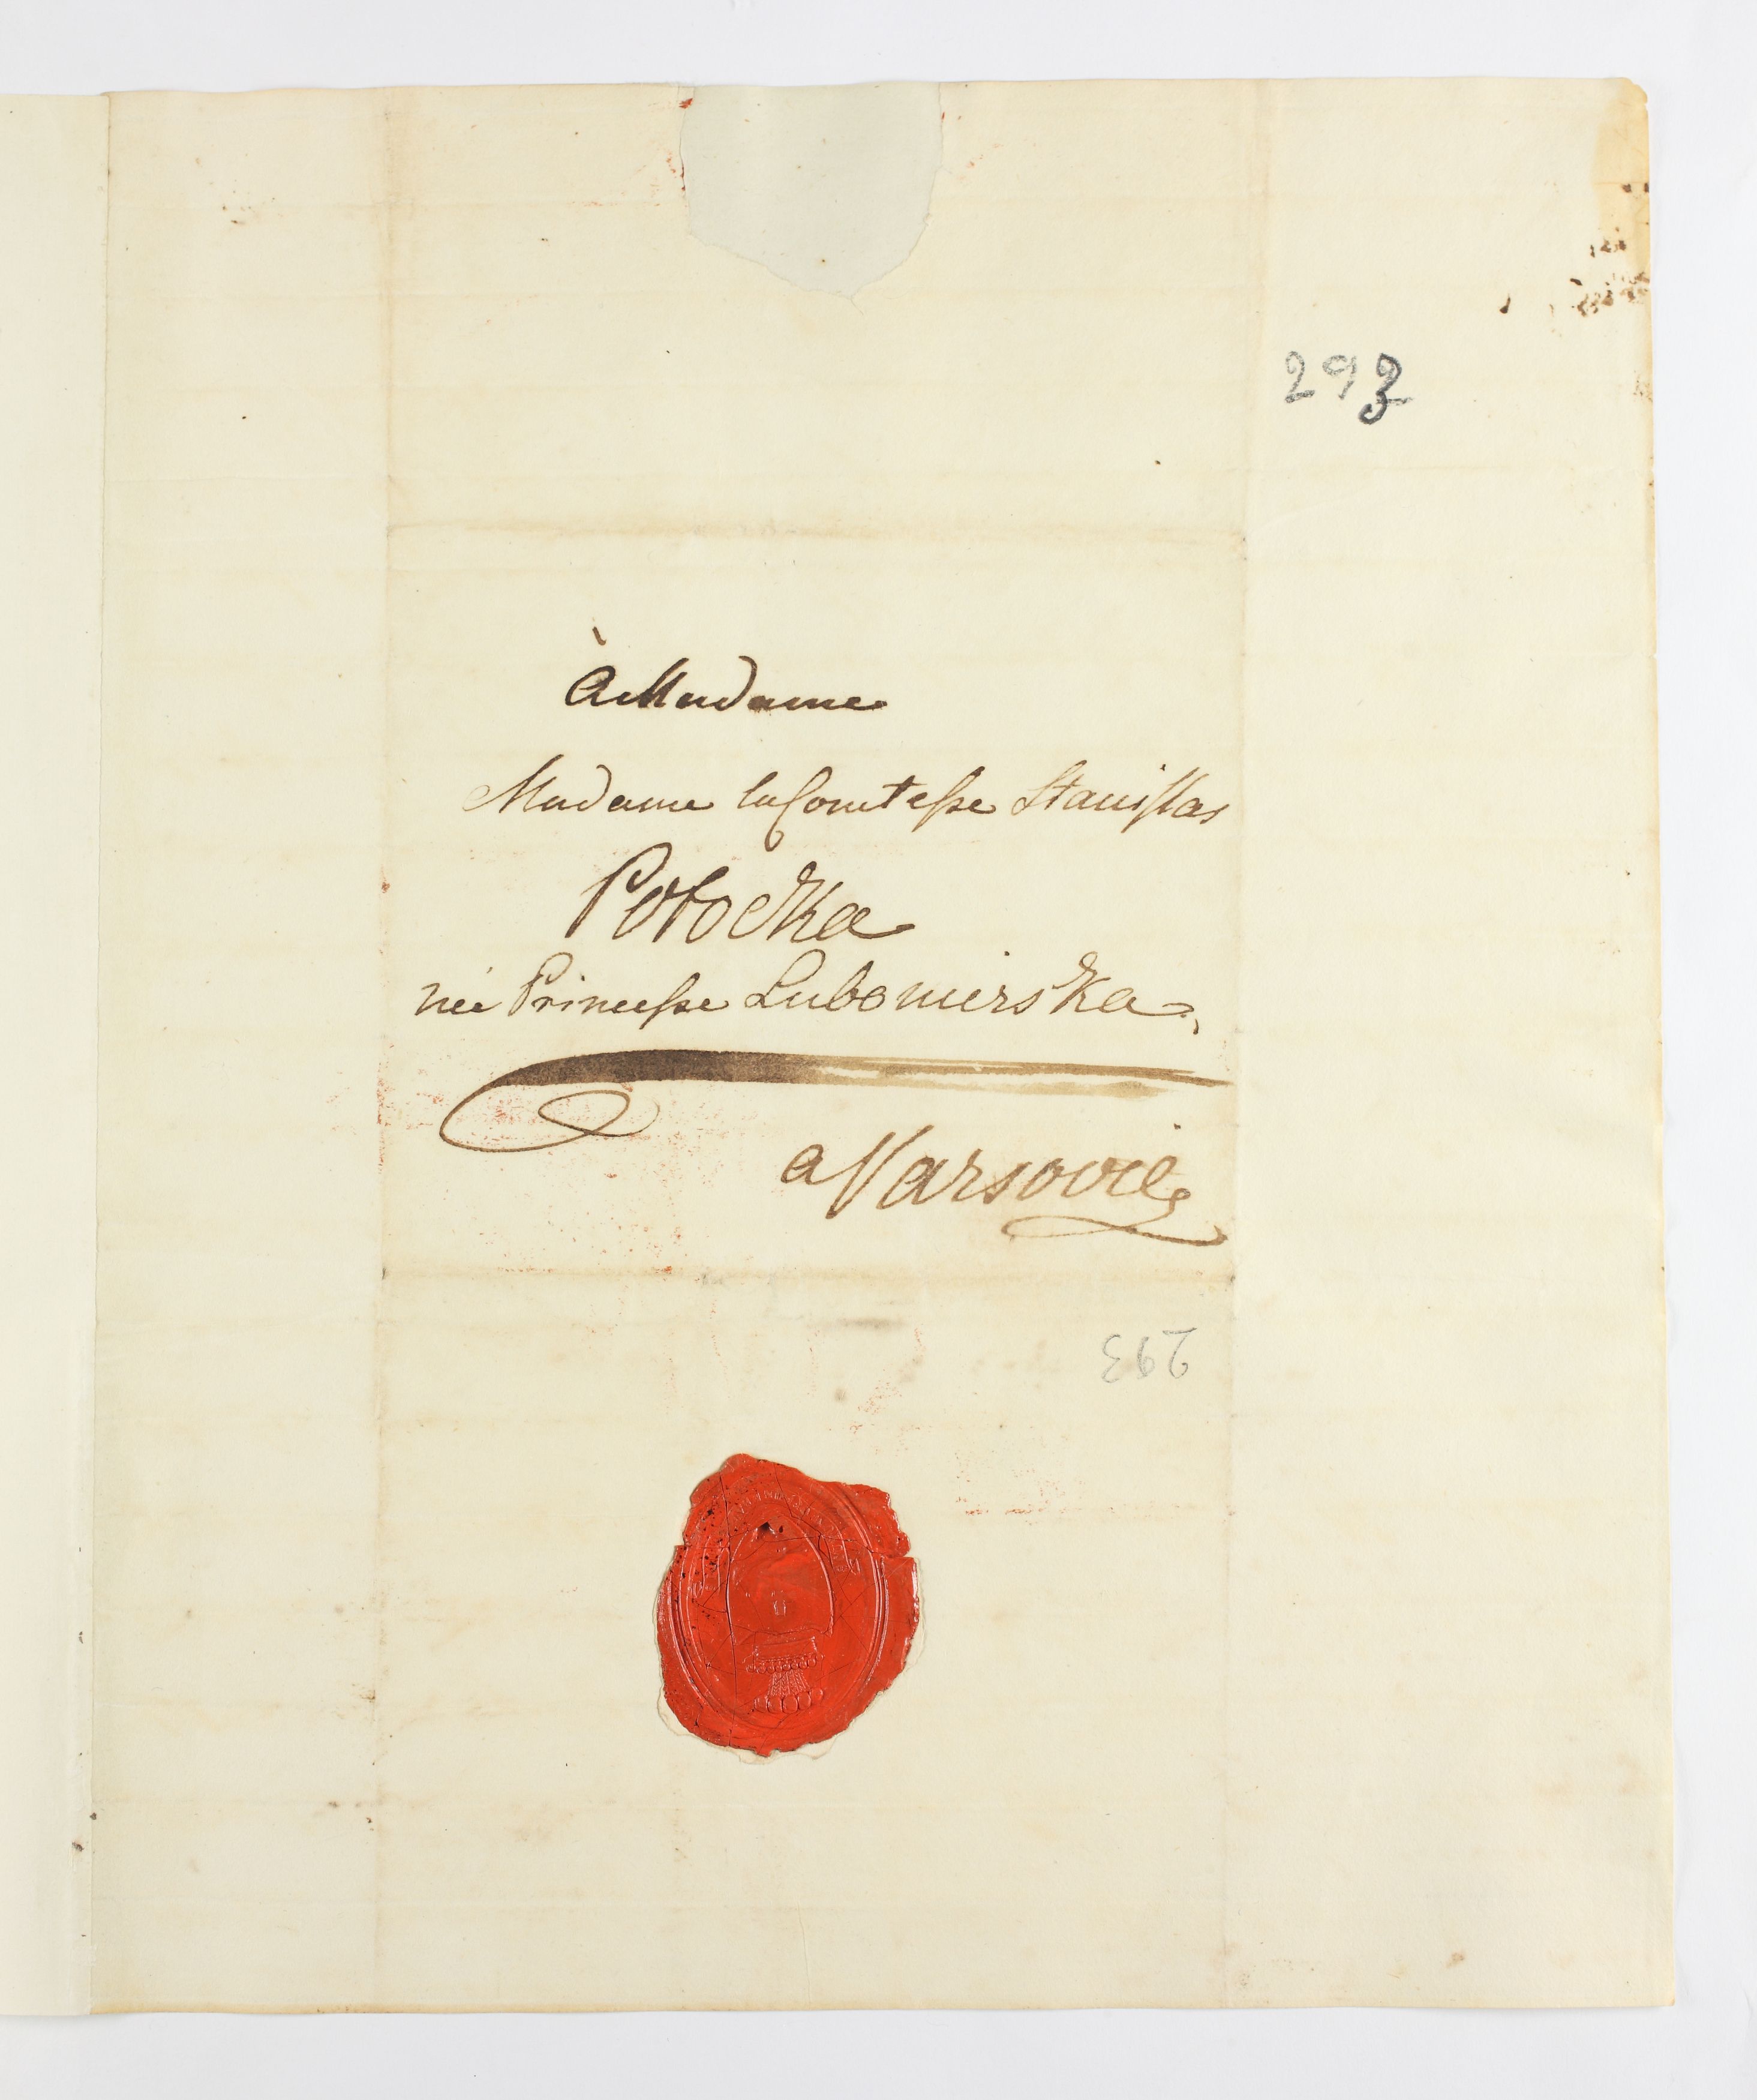 293
à Madame
Madame la Comtesse Stanislas
Potocka
née Princesse Lubomirska
a Varsovie
293